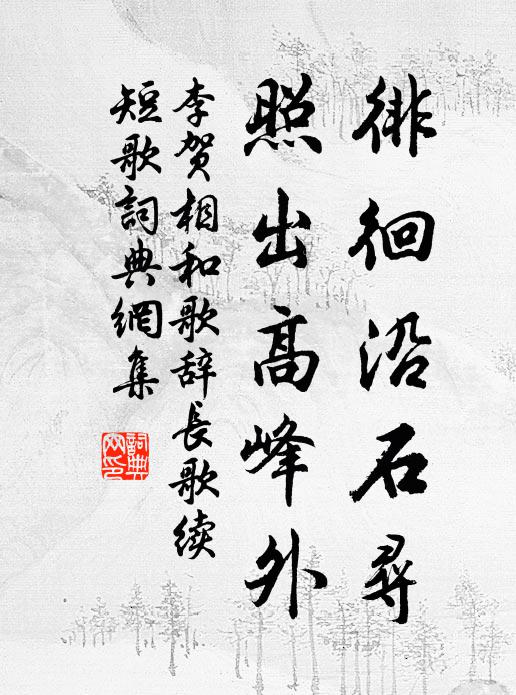 徘徊沿石尋
照出高峰外
李贺相和歌辞長歌续
短歌詞典網集
詞典网印